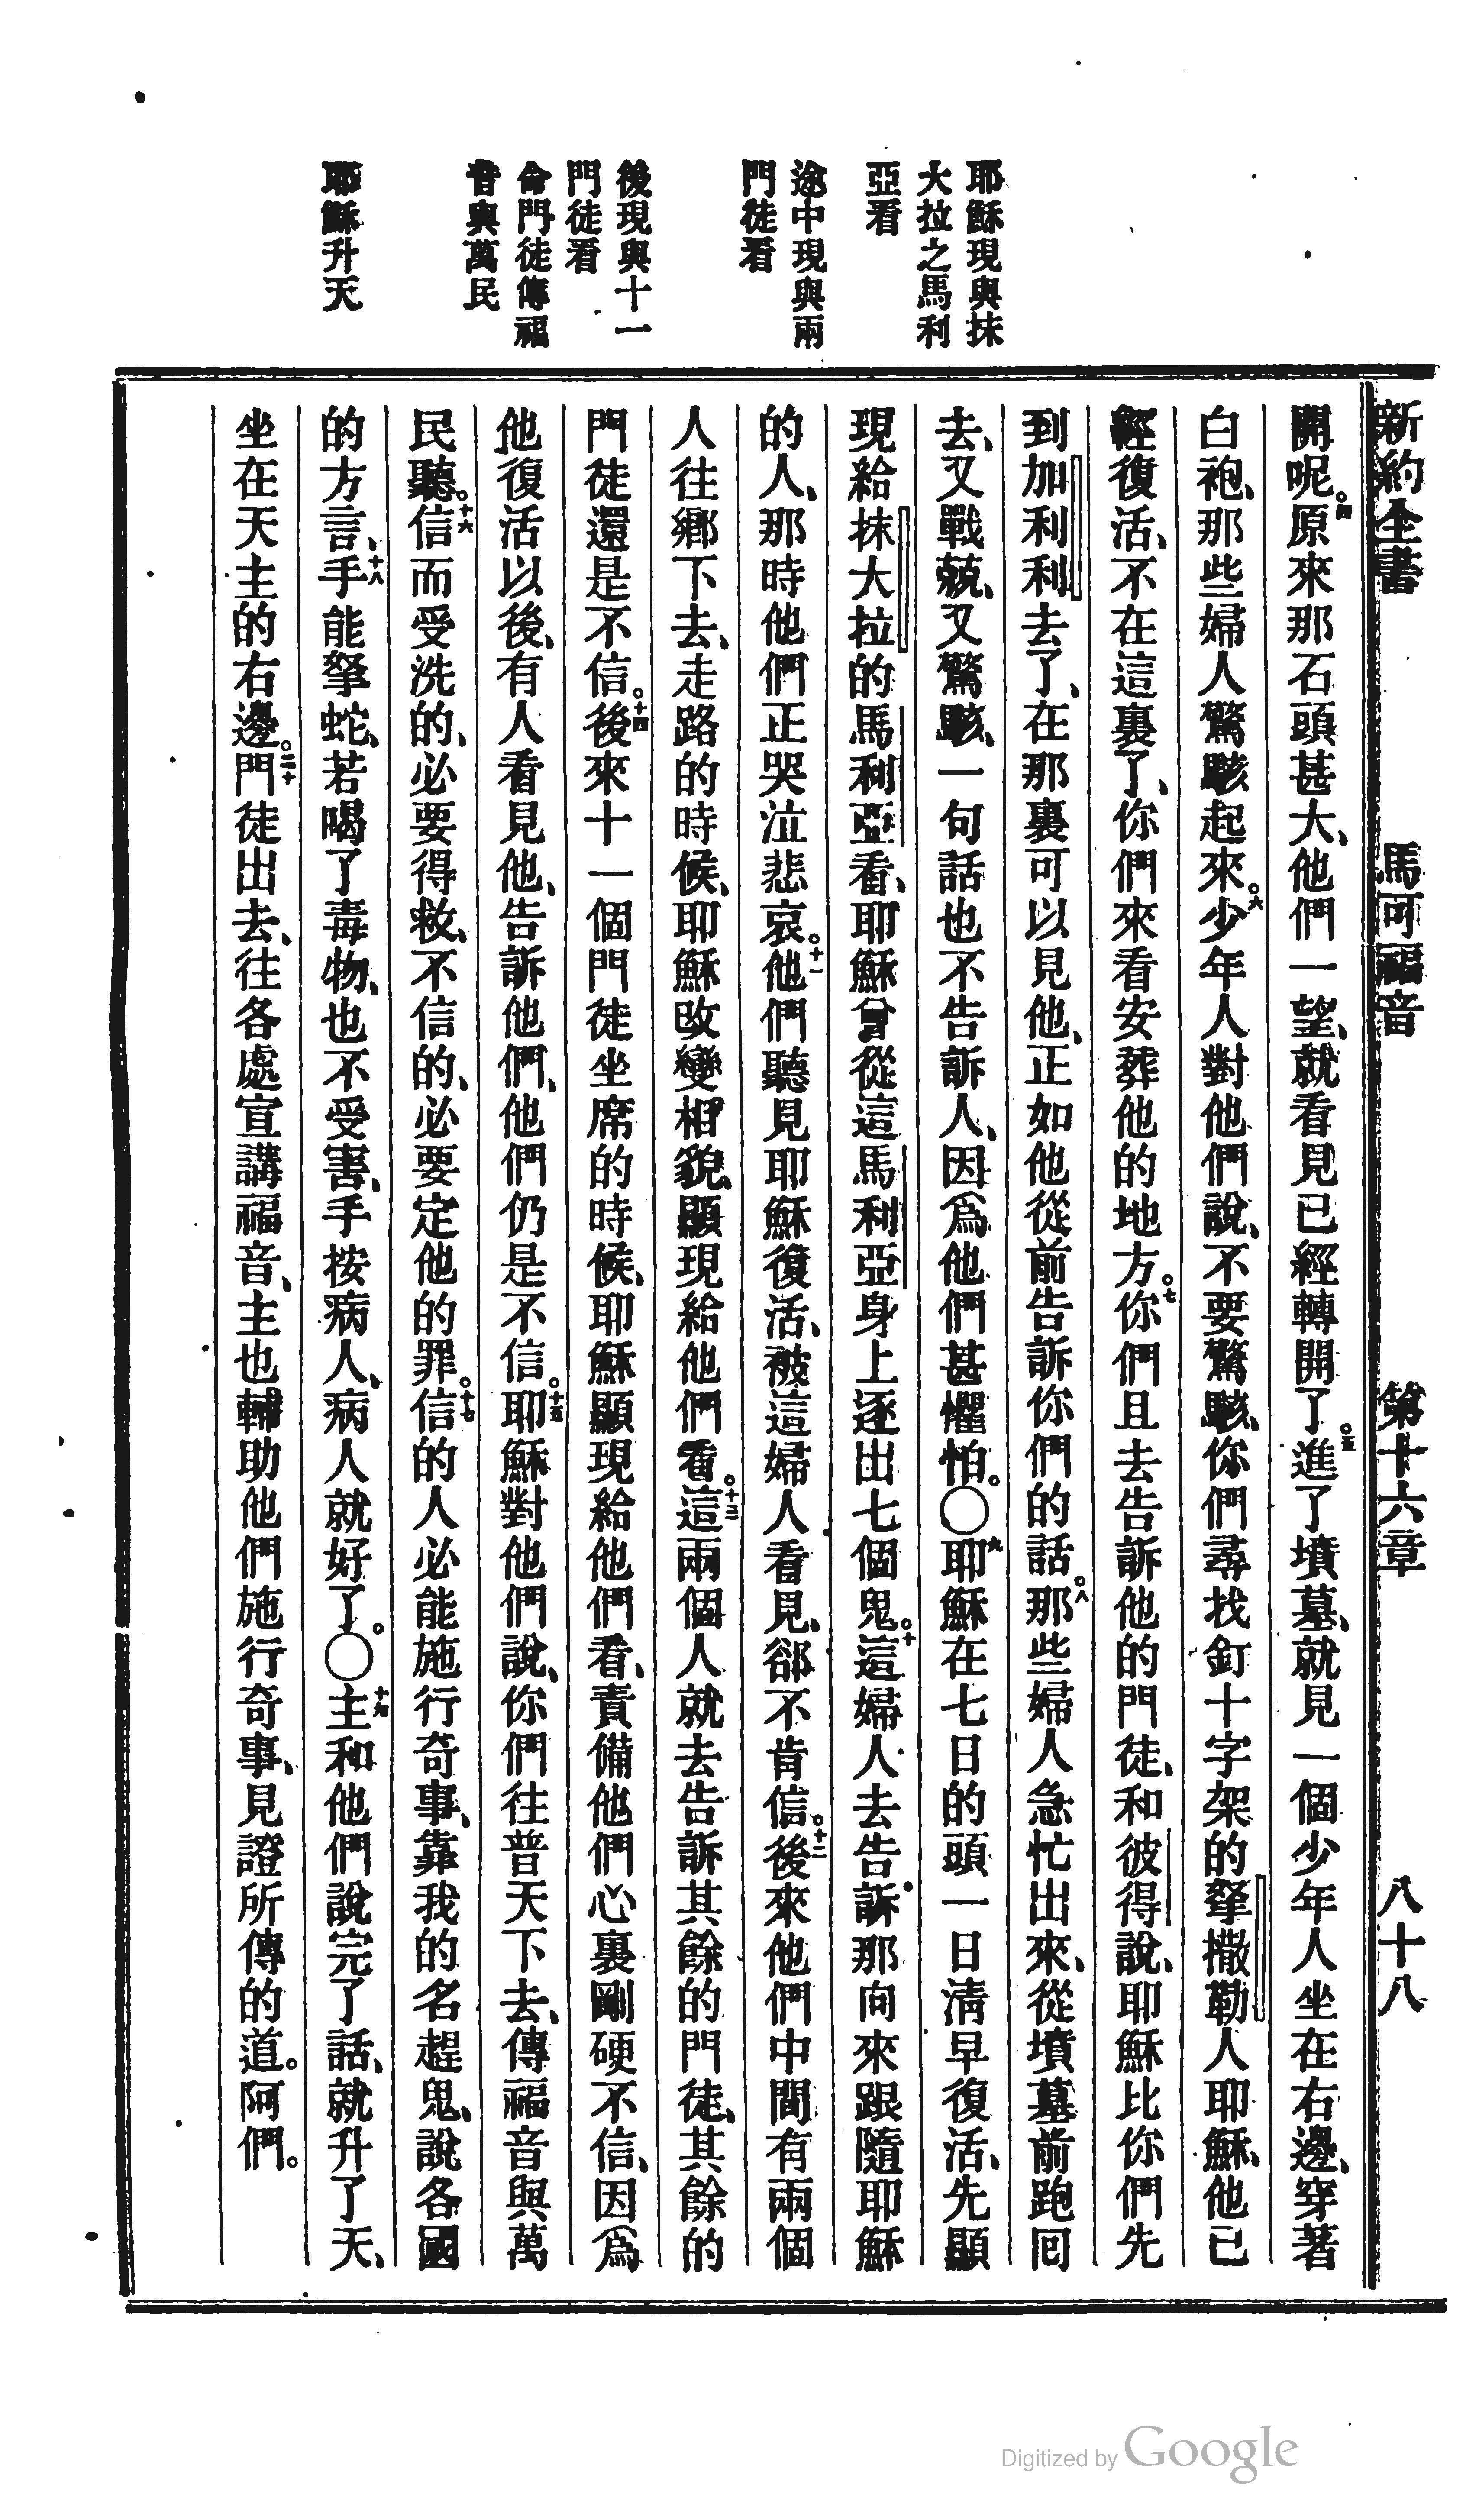 新約全書　馬可福音　第十六章　八十八
耶穌現與抹
大拉之馬利
亞看
途中現與兩
門徒看
後現與十一
門徒看
命門徒傳福
音與萬民
耶穌升天
開呢。四原來那石頭甚大、他們一望、就看見已經轉開了。五進了墳墓、就見一個少年人坐在右邊、穿著
白袍、那些婦人驚駭起來。六少年人對他們說、不要驚駭、你們尋找釘十字架的拏撒勒人耶穌、他已
經復活、不在這裏了、你們來看安葬他的地方。七你們且去告訴他的門徒、和彼得說、耶穌比你們先
到加利利去了、在那裏可以見他、正如他從前告訴你們的話。八那些婦人急忙出來、從墳墓前跑回
去、又戰兢、又驚駭、一句話也不告訴人、因爲他們甚懼怕。〇九耶穌在七日的頭一日清早復活、先顯
現給抹大拉的馬利亞看、耶穌曾從這馬利亞身上逐出七個鬼。十這婦人去告訴那向來跟隨耶穌
的人、那時他們正哭泣悲哀。十一他們聽見耶穌復活、被這婦人看見、卻不肯信。十二後來他們中間有兩個
人往鄉下去、走路的時候、耶穌改變相貌、顯現給他們看。十三這兩個人就去告訴其餘的門徒、其餘的
門徒還是不信。十四後來十一個門徒坐席的時候、耶穌顯現給他們看、責備他們心裏剛硬不信、因爲
他復活以後、有人看見他、告訴他們、他們仍是不信。十五耶穌對他們說、你們往普天下去、傳福音與萬
民聽。十六信而受洗的、必要得救、不信的、必要定他的罪。十七信的人必能施行奇事、靠我的名趕鬼、說各國
的方言、十八手能拏蛇、若喝了毒物、也不受害、手按病人、病人就好了。〇十九主和他們說完了話、就升了天、
坐在天主的右邊。二十門徒出去、往各處宣講福音、主也輔助他們施行奇事、見證所傳的道。阿們。
Digitized by Google